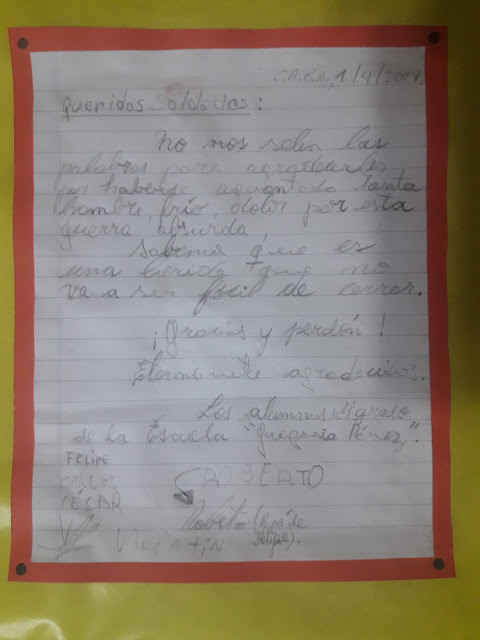 C.A.B.A., 1/4/2019.
Queridos Soldados:
No nos salen las
palabras para agradecerles
por haberse aguantado tanta
hambre, frío, dolor por esta
guerra absurda,
Sabemos que es
una herida que no
va a ser fácil de cerrar.
¡Gracias y perdón!
Eternamente agradecidos.
Los alumnos grado
de la Escuela "Gregoria Pérez".
FELIPE
CARLOS
CÉSAR
ROBERTO
Roberto (hijo de
Felipe).
VALENTÍN